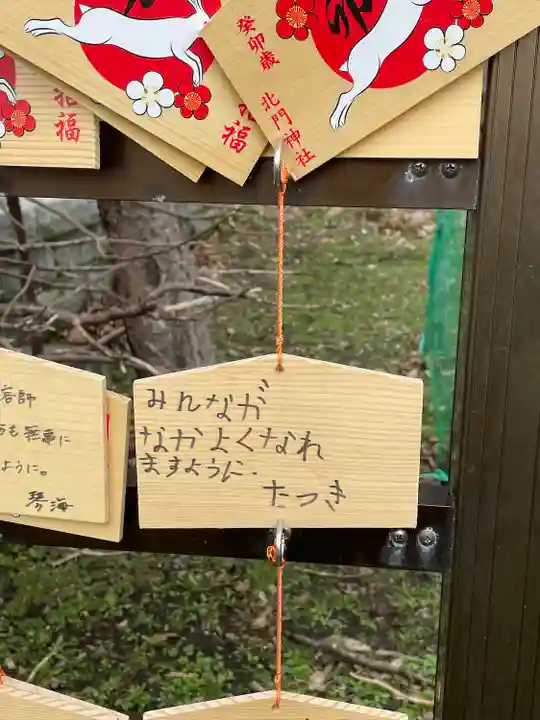 卯
癸卯歳
北門神社
招福
福
みんなが
なかよくなれ
ますように.
たつき
容師
も無事に
ように。
琴海